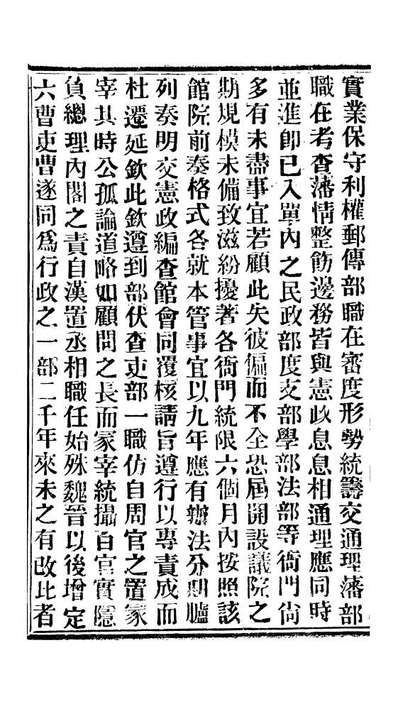 實業保守利權郵傳部職在審度形勢統籌交通理藩部
職在考查藩情整飭邊務皆與憲政息息相通理應同時
並進卽已入單內之民政部度支部學部法部等衙門尙
多有未盡事宜若顧此失彼偏而不全恐屆開設議院之
期規模未備致滋紛擾著各衙門統限六個月內按照該
館院前奏格式各就本管事宜以九年應有辦法分期臚
列奏明交憲政編查館會同覆核請旨遵行以專責成而
杜遷延欽此欽遵到部伏查吏部一職仿自周官之置冢
宰其時公孤論道略如顧問之長而冢宰統攝百官實隱
負總理內閣之責自漢置丞相職任始殊魏晉以後增定
六曹吏曹遂同爲行政之一部二千年來未之有改比者